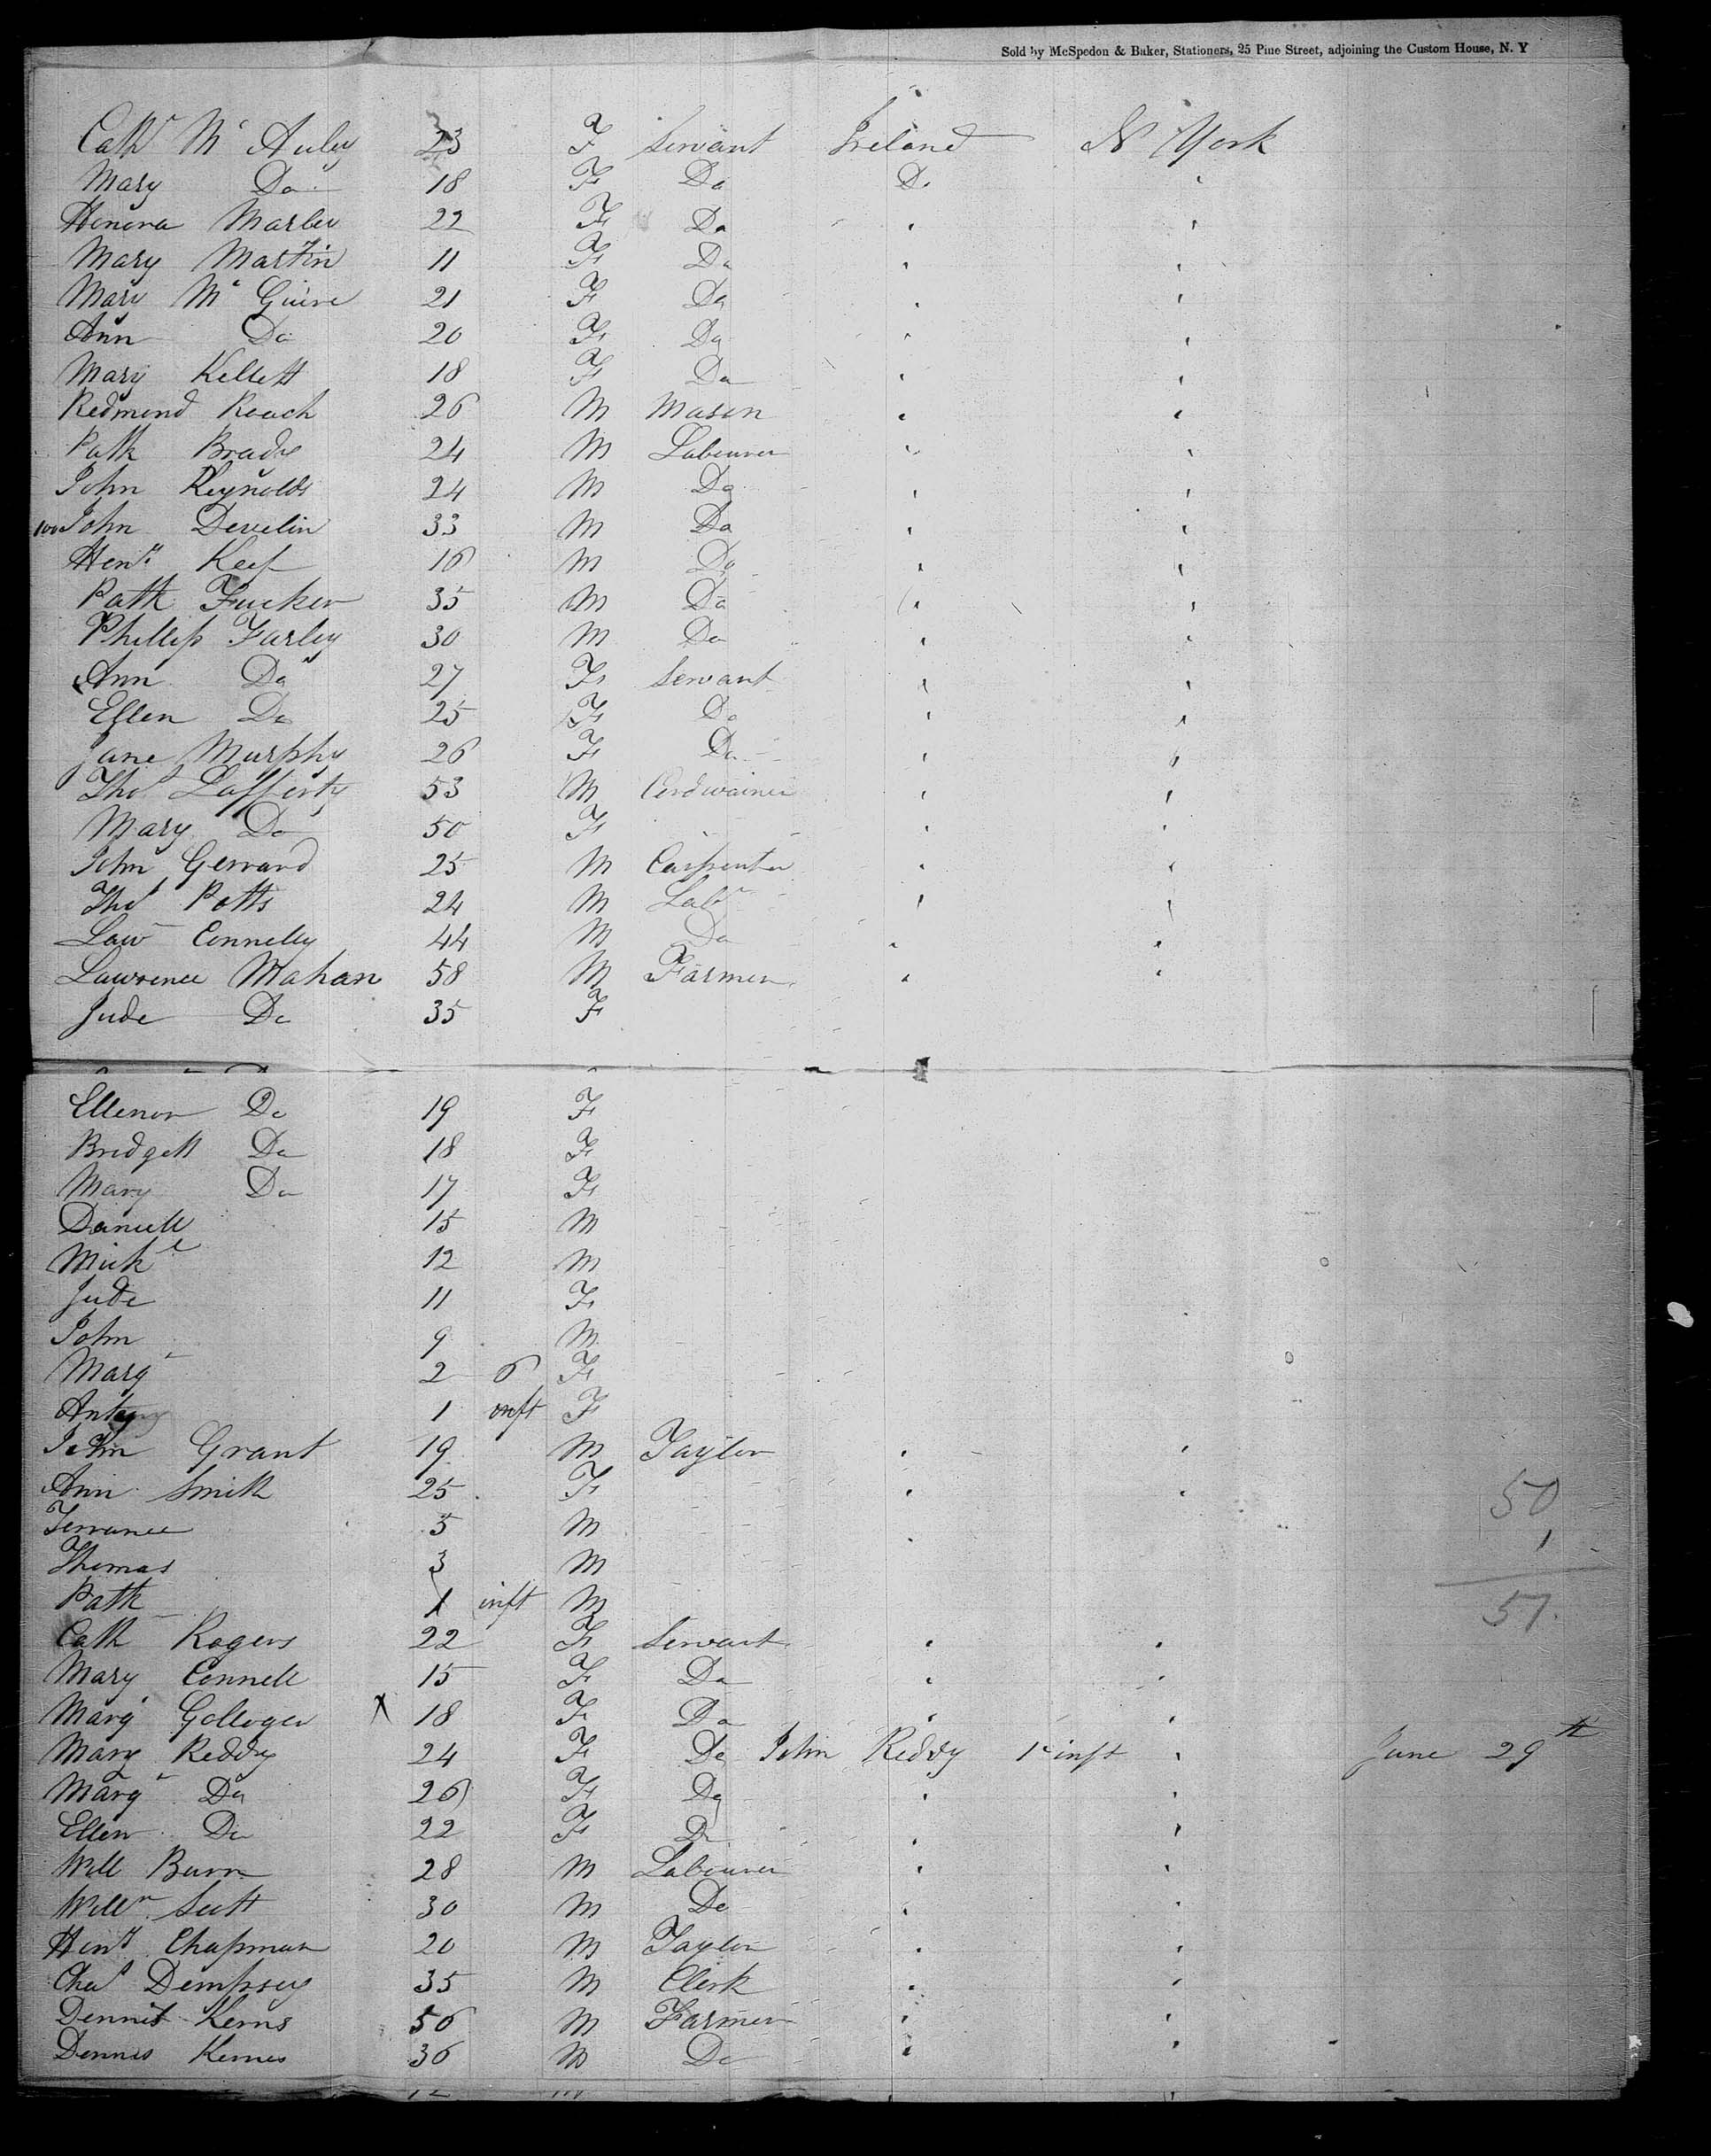 Sold by McSpedon & Baker, Stationers, 25 Pine Street, adjoining the Custom House, N. Y
Cathr Mc Auley 23 F Servant Ireland N York
Mary Do 18 F Do Do
Honora 22 F Do
Mary Martin 11 F Do
Mary Mc Guire 21 F Do
Ann Do 20 F Do
Mary Kellett 18 F Do
Redmond Roach 26 M Mason
Patk Brady 24 M Labourer
John Reynolds 24 M Do
100 John Develin 33 M Do
Heny Keef 16 M Do
Patk 35 M Do
Phillip Farley 30 M Do
Ann Do 27 F Servant
Ellen Do 25 F Do
Jane Murphy 26 F Do
Thos Lafferty 53 M Cordwainer
Mary Do 50 F
John Gerrard 25 M Carpenter
Thos Potts 24 M Labr
Law Connelly 44 M Do
Lawrence Mahan 58 M Farmer
Jude Do 35 F
Ellenor Do 19 F
Bridgett Do 18 F
Mary Do 17 F
Daniell 15 M
Michl 12 M
Jude 11 F
John 9 M
Margt 2 6 F
1 inft F
John Grant 19 M Taylor
Ann Smith 25 F
Terrance 5 M
50
1
Thomas 3 M
Patk 1 inft M
51
Cath Rogers 22 F Servant
Mary Connell 15 F Do
Margt X 18 F Do
Mary Reddy 24 F Do John Reddy 1 inft June 29th
Margt Do 26 F Do
Ellen Do 22 F Do
Will Burn 28 M Labourer
Willm Scott 30 M Do
Heny Chapman 20 M Taylor
Chas Dempsey 35 M Clerk
Dennis Kerns 56 M Farmer
Dennis Kernes 36 M Do